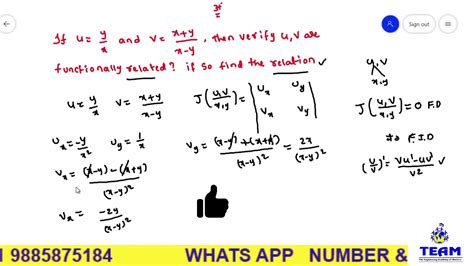 If u = y/x and v = x+y/x-y, then verify u,v are
functionally related? if so find the relation ✓
u = y/x v = x+y/x-y J(u,v/x,y) = | ux uy vx vy | u,v x,y
J(u,v/x,y) = 0 F.D
ux = -y/x² uy = 1/x
vy = (x-y)+(x+y)/(x-y)² = 2x/(x-y)²
≠0 F.I.D
vx = (x-y)-(x+y)/(x-y)²
(u/v)' = vu'-uv'/v² ✓
vx = -2y/(x-y)²
Sign out
1 9885875184 WHATS APP NUMBER &
TEAM